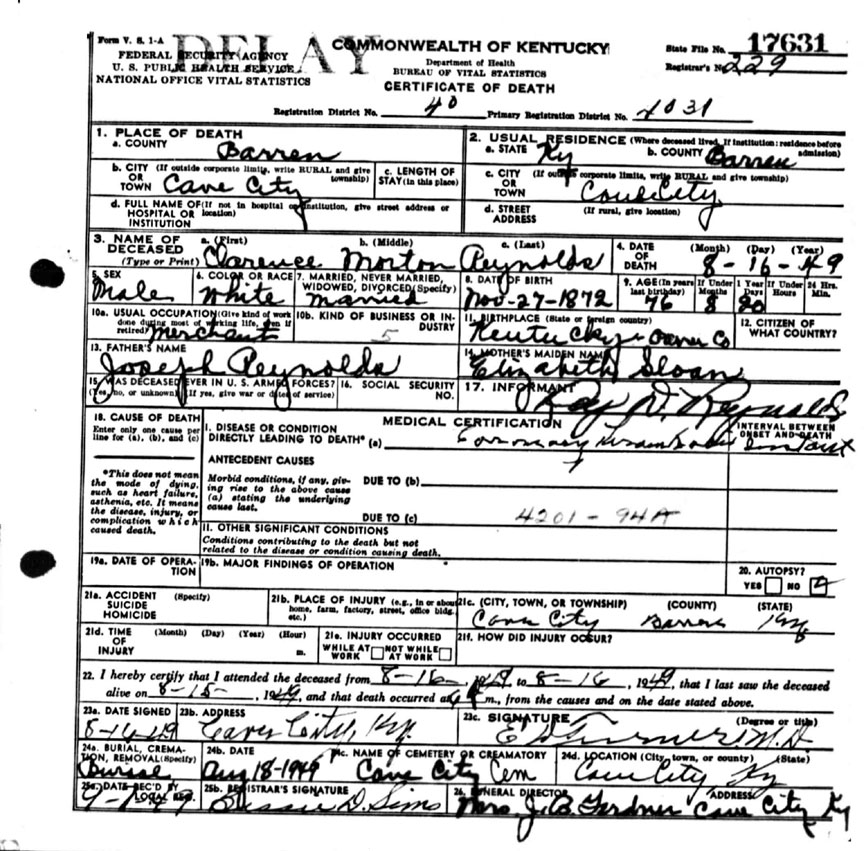 Form V. S. 1-A
DELAY
FEDERAL SECURITY AGENCY
U. S. PUBLIC HEALTH SERVICE
NATIONAL OFFICE VITAL STATISTICS
COMMONWEALTH OF KENTUCKY
Department of Health
BUREAU OF VITAL STATISTICS
CERTIFICATE OF DEATH
State File No. 17631
Registrar's No. 229
Registration District No. 40 Primary Registration District No. 4031
1. PLACE OF DEATH
a. COUNTY Barren
b. CITY (If outside corporate limits, write RURAL and give township)
OR
TOWN Cave City
c. LENGTH OF STAY (in this place)
d. FULL NAME OF (If not in hospital or institution, give street address or location)
HOSPITAL OR
INSTITUTION
2. USUAL RESIDENCE (Where deceased lived. If institution: residence before admission)
a. STATE Ky b. COUNTY Barren
c. CITY (If outside corporate limits, write RURAL and give township)
OR
TOWN Cave City
d. STREET ADDRESS (If rural, give location)
3. NAME OF DECEASED (Type or Print)
a. (First) b. (Middle) c. (Last)
Clarence Morton Reynolds
4. DATE OF DEATH (Month) (Day) (Year)
8-16-49
5. SEX
Male
6. COLOR OR RACE
White
7. MARRIED, NEVER MARRIED, WIDOWED, DIVORCED (Specify)
Married
8. DATE OF BIRTH
Nov-27-1872
9. AGE (In years last birthday) If Under 1 Year Months Days If Under 24 Hrs. Hours Min.
76 8 20
10a. USUAL OCCUPATION (Give kind of work done during most of working life, even if retired)
Merchant
10b. KIND OF BUSINESS OR INDUSTRY
5
11. BIRTHPLACE (State or foreign country)
Kentucky Co
12. CITIZEN OF WHAT COUNTRY?
13. FATHER'S NAME
Joseph Reynolds
14. MOTHER'S MAIDEN NAME
Elizabeth Sloan
15. WAS DECEASED EVER IN U. S. ARMED FORCES?
(Yes, no, or unknown) (If yes, give war or dates of service)
16. SOCIAL SECURITY NO.
17. INFORMANT
Ray D. Reynolds
18. CAUSE OF DEATH
Enter only one cause per line for (a), (b), and (c)
*This does not mean the mode of dying, such as heart failure, asthenia, etc. It means the disease, injury, or complication which caused death.
MEDICAL CERTIFICATION
INTERVAL BETWEEN ONSET AND DEATH
I. DISEASE OR CONDITION
DIRECTLY LEADING TO DEATH* (a) Coronary Thrombosis Instant
ANTECEDENT CAUSES
Morbid conditions, if any, giving rise to the above cause (a) stating the underlying cause last.
DUE TO (b)
DUE TO (c)
4201-94A
11. OTHER SIGNIFICANT CONDITIONS
Conditions contributing to the death but not related to the disease or condition causing death.
19a. DATE OF OPERATION
19b. MAJOR FINDINGS OF OPERATION
20. AUTOPSY?
YES NO
21a. ACCIDENT SUICIDE HOMICIDE (Specify)
21b. PLACE OF INJURY (e.g., in or about home, farm, factory, street, office bldg. etc.)
21c. (CITY, TOWN, OR TOWNSHIP) (COUNTY) (STATE)
Cave City Barren Ky
21d. TIME OF INJURY (Month) (Day) (Year) (Hour) m.
21e. INJURY OCCURRED
WHILE AT WORK NOT WHILE AT WORK
21f. HOW DID INJURY OCCUR?
22. I hereby certify that I attended the deceased from 8-16, 1949 to 8-16, 1949, that I last saw the deceased
alive on 8-15-, 1949, and that death occurred at m., from the causes and on the date stated above.
23a. DATE SIGNED
8-16-49
23b. ADDRESS
Cave City, Ky.
23c. SIGNATURE (Degree or title)
E D Turner M.D.
24a. BURIAL, CREMATION, REMOVAL (Specify)
Burial
24b. DATE
Aug 18-1949
24c. NAME OF CEMETERY OR CREAMATORY
Cave City Cem
24d. LOCATION (City, town, or county) (State)
Cave City Ky
25a. DATE REC'D BY LOCAL REG.
25b. REGISTRAR'S SIGNATURE
Bessie D. Sims
26. FUNERAL DIRECTOR ADDRESS
Mrs. J. B. Gardner Cave City Ky